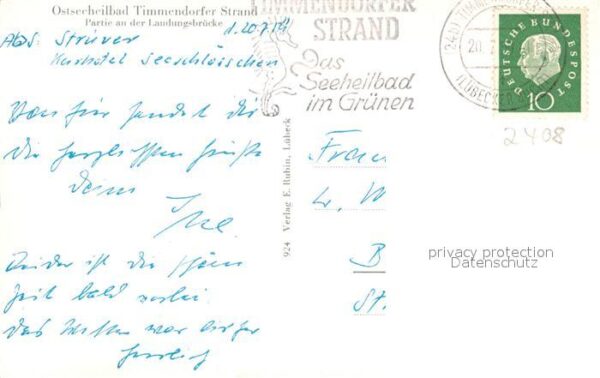 Ostseeheilbad Timmendorfer Strand
Partie an der Landungsbrücke
d. 20.7.
Abs. Strüver
Kurhotel Seeschlösschen
TIMMENDORFER
STRAND
Das
Seeheilbad
im Grünen
DEUTSCHE BUNDESPOST
10
2408
Von hier sendet dir
die herzlichsten Grüße
deine
Ilse
Leider ist die schöne
Zeit bald vorbei.
das Wetter war bisher
herrlich
924 Verlag E. Rubin, Lübeck
Frau
W
B
St.
privacy protection
Datenschutz